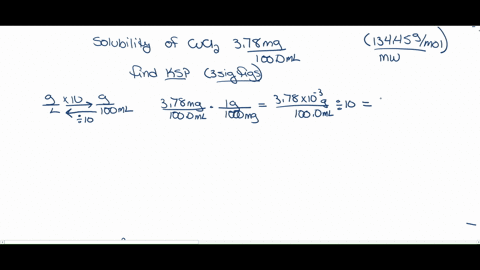 Solubility of CuCl2 3.78mg/100.0mL (134.45g/mol) MW
find KSP (3sig figs)
g/L ×10 ÷10 g/100mL 3.78mg/100.0mL · 1g/1000mg = 3.78×10^-3 g/100.0mL ÷10 =